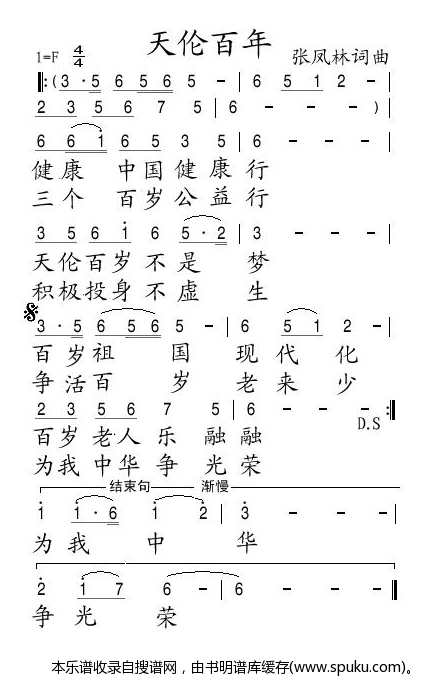 天伦百年
1=F 4/4 张凤林词曲
‖:(3·5 6 5 6 5 - | 6 5 1 2 - |
2 3 5 6 7 5 | 6 - - - )|
6 6 1 6 5 3 5 | 6 - - - |
健康 中国健康行
三个 百岁公益行
3 5 6 1 6 5·2 | 3 - - - |
天伦百岁不是 梦
积极投身不虚 生
3·5 6 5 6 5 - | 6 5 1 2 - |
百岁祖 国 现代化
争活百 岁 老来少
2 3 5 6 7 5 | 6 - - - :‖
D.S
百岁老人乐融融
为我中华争光荣
结束句 渐慢
1 1·6 1 2 | 3 - - - |
为我 中 华
2 1 7 6 - | 6 - - - ‖
争光 荣
本乐谱收录自搜谱网，由书明谱库缓存(www.spuku.com)。